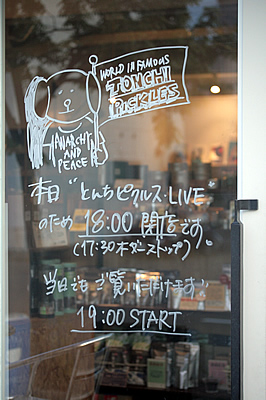 WORLD IN FAMOUS
TONCHI
PICKLES
ANARCHY
AND
PEACE
本日 "とんちピクルス・LIVE"
のため 18:00 閉店です。
(17:30 オーダーストップ)
当日でもご覧いただけます。
19:00 START